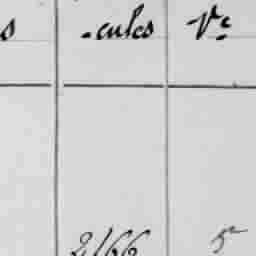 s -cules Vc
2166 5